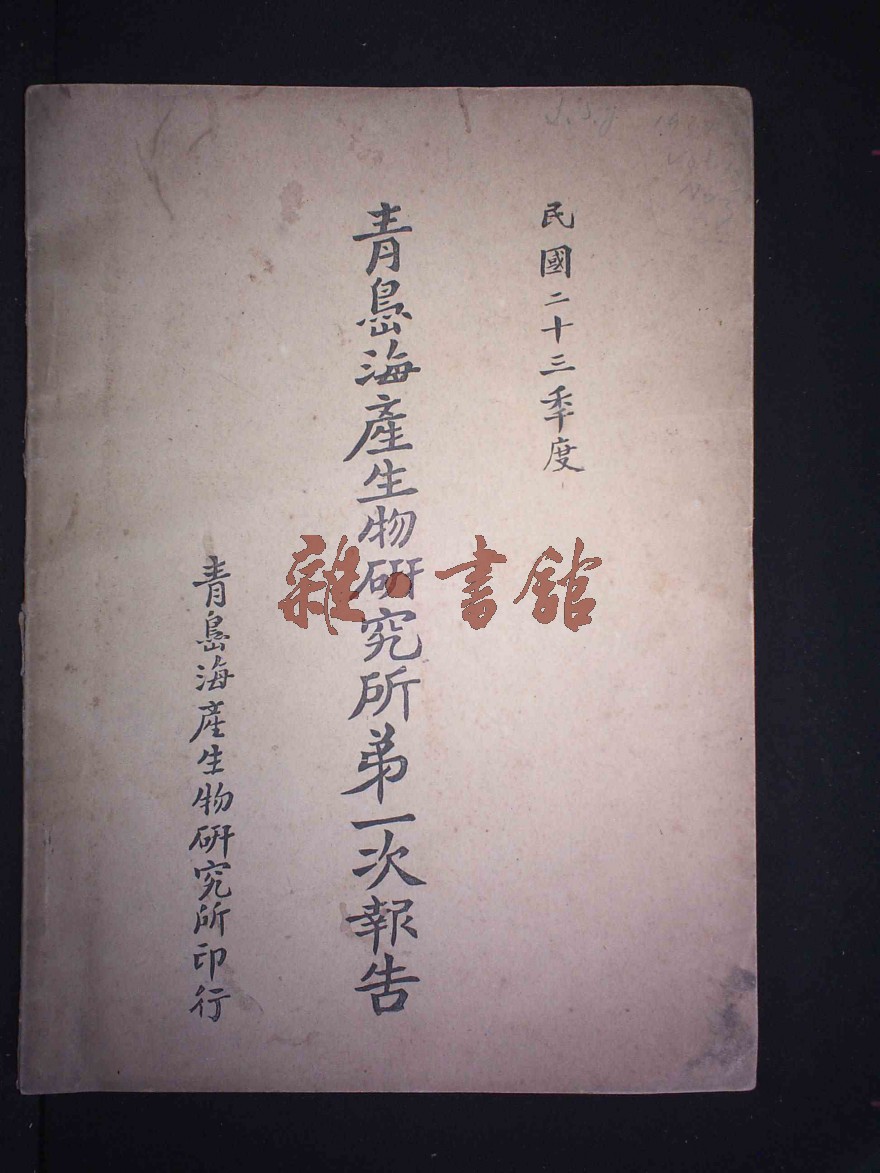 民國二十三秊度
青島海產生物研究所弟一次報告
青島海產生物研究所印行
雜·書館